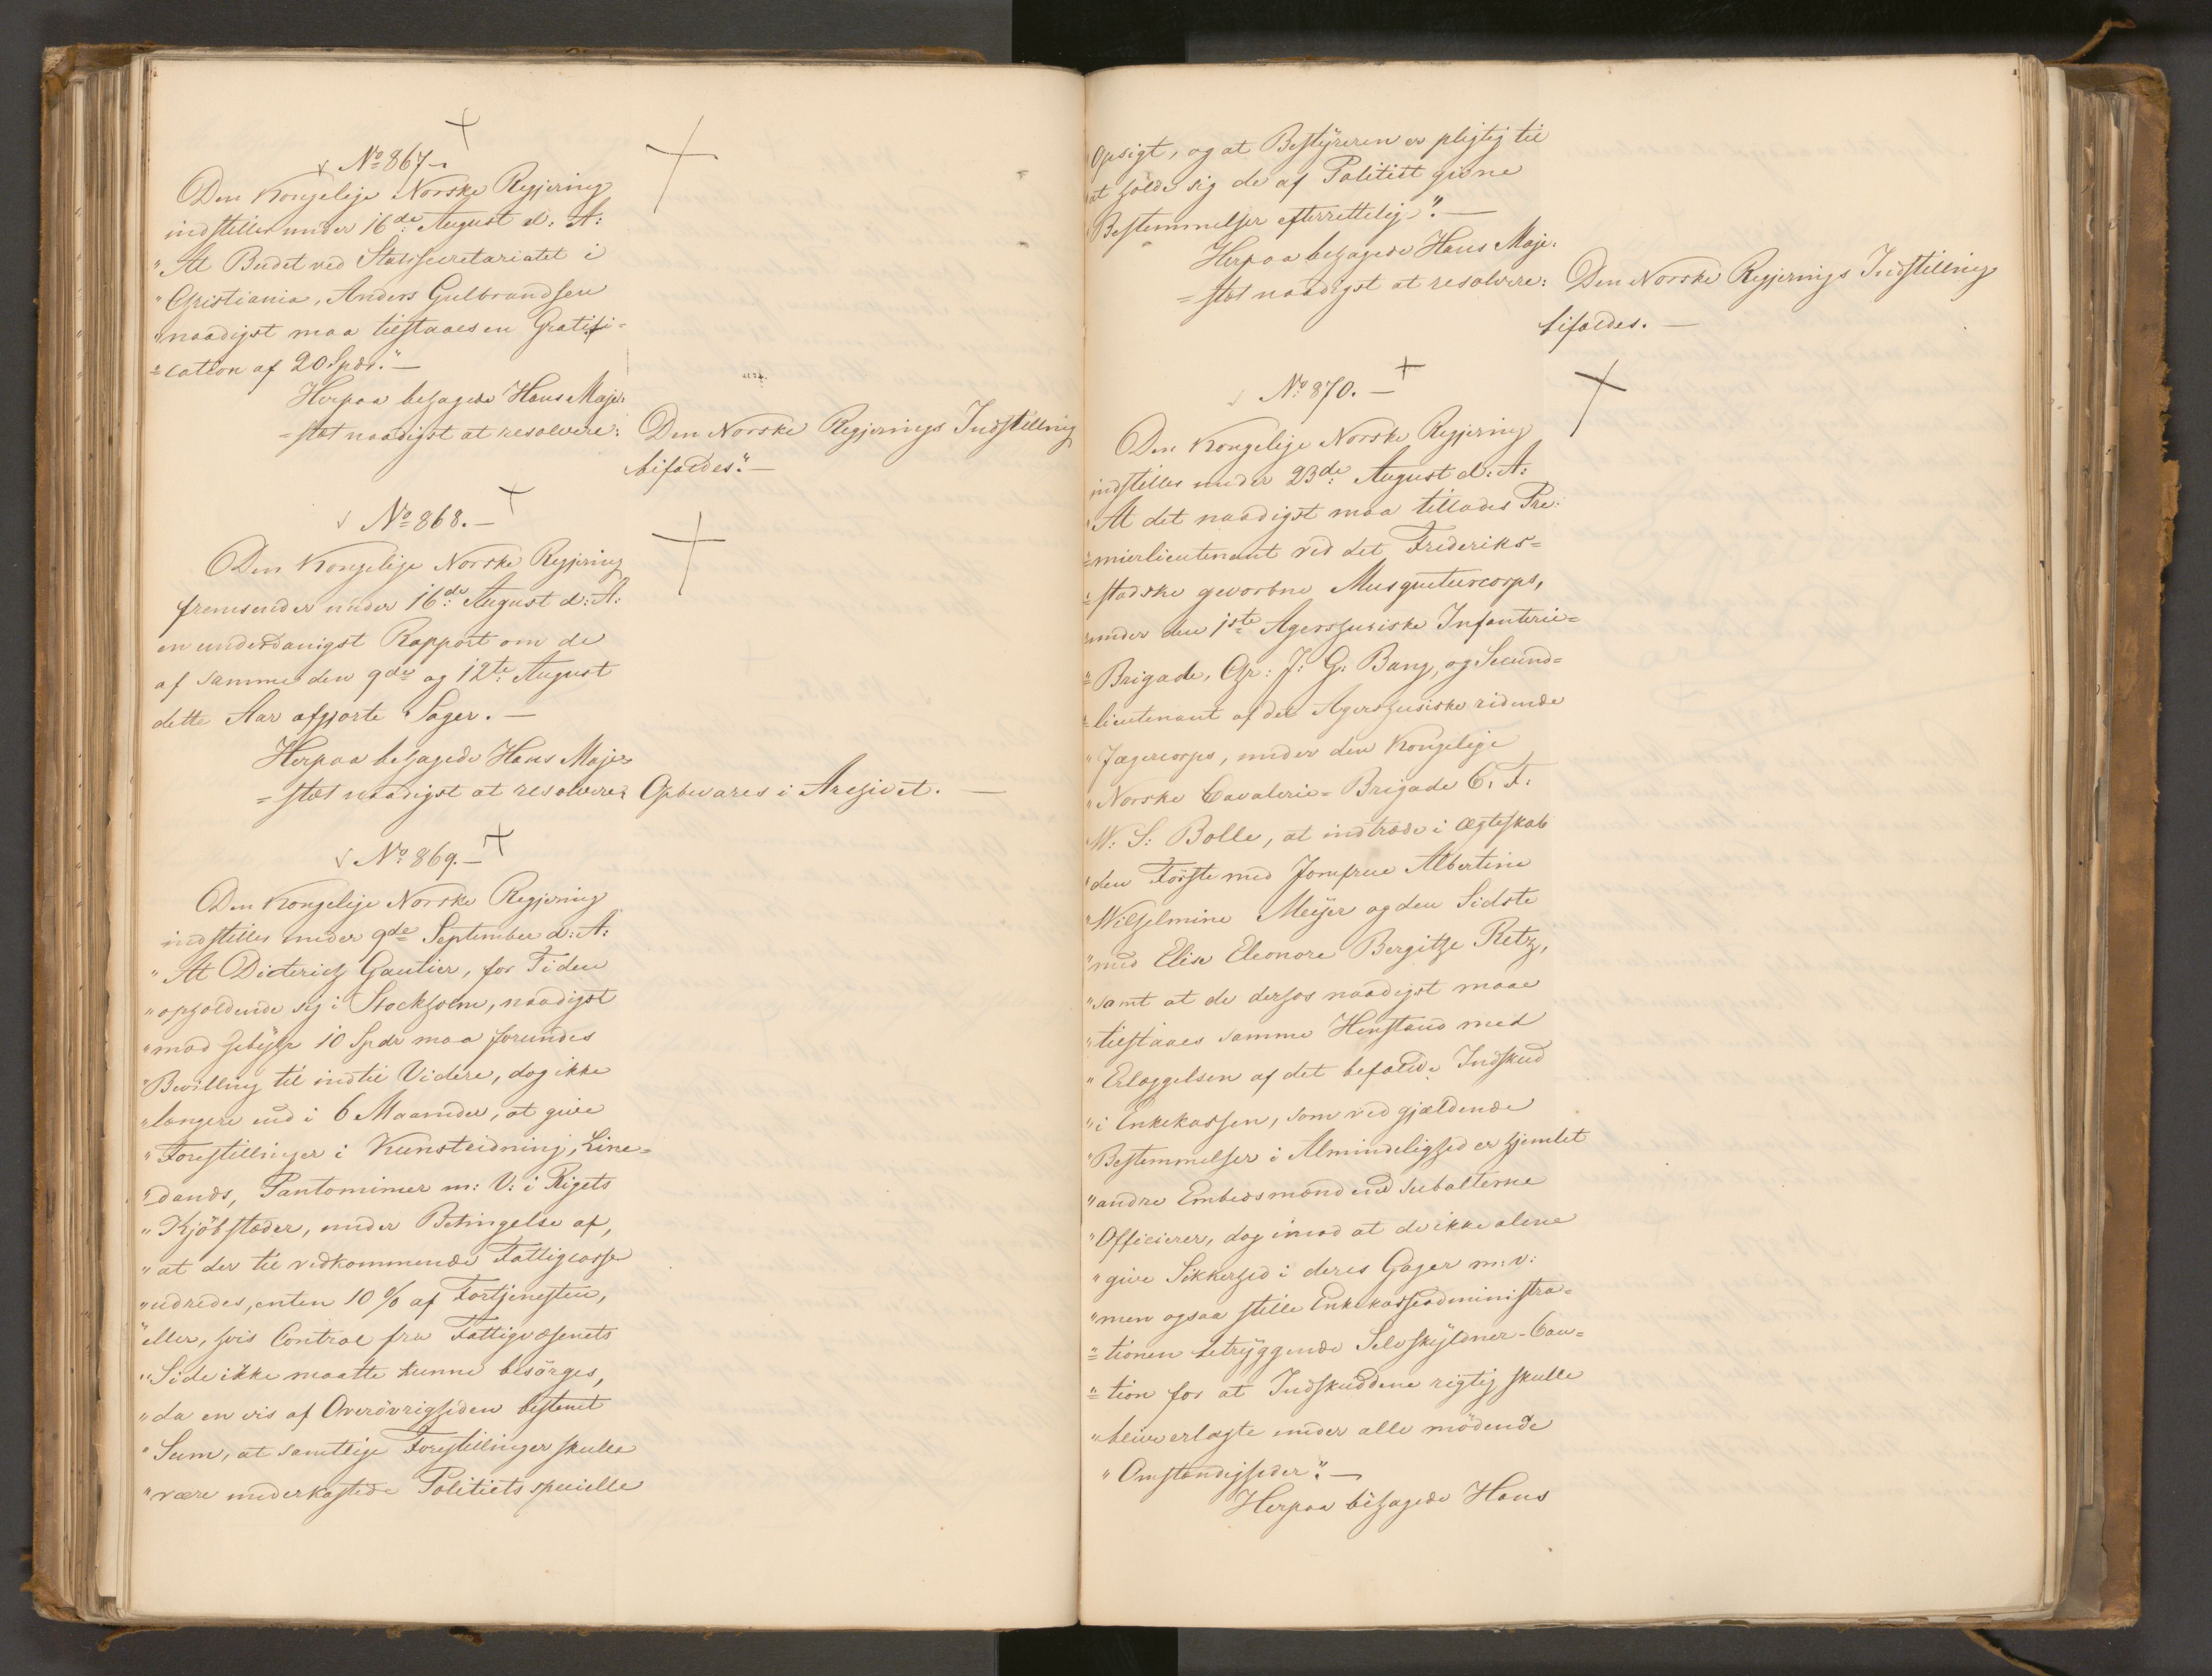 No 867.
Den Kongelige Norske Regjering
indstiller under 16de August d: A:
"At Budet ved Statssecretariatet i
"Christiania, Anders Gulbrandsen
"naadigst maa tilstaaes en Gratifi=
"=cation af 20 Spdr."—
Herpaa behagede Hans Maje=
=stæt naadigst at resolvere: Den Norske Regjerings Indstilling
bifaldes."—
No 868.—
Den Kongelige Norske Regjering
fremsender under 16de August d: A:
en underdanigst Rapport om de
af samme den 9de og 12te August
dette Aar afgjorte Sager.—
Herpaa behagede Hans Maje=
=stæt naadigst at resolvere: Opbevares i Archivet.—
No 869.—
Den Kongelige Norske Regjering
indstiller under 9de September d: A:
"At Dieterich Gautier, for Tiden
"opholdende sig i Stockholm, naadigst
"mod Gebÿhr 10 Spdr maa forundes
"Bevilling til indtil Videre, dog ikke
"længere end i 6 Maaneder, at give
"Forestillinger i Kunstridning, Line=
"=dands, Pantomimer m: V: i Rigets
"Kjöbstæder, under Betingelse af,
"at der til vedkommende Fattigcasse
"udredes, enten 10 % af Fortjenesten,
"eller, hvis Control fra Fattigvæsenets
"Side ikke maatte kunne besörges,
"da en vis af Overövrigheden bestemt
"Sum, at samtlige Forestillinger skulle
"være underkastede Politiets specielle
"Opsigt, og at Bestÿreren er pligtig til
"at holde sig de af Politiet givne
"Bestemmelser efterrettelig".—
Herpaa behagede Hans Maje:
=stæt naadigst at resolvere: Den Norske Regjerings Indstilling
bifaldes.—
No 870.—
Den Kongelige Norske Regjering
indstiller under 23de August d: A:
"At det naadigst maa tillades Pre:
"=mierlieutenant ved det Frederiks=
"=stadske gevorbne Musqueteercorps,
"under den 1ste Agershusiske Infanterie=
"=Brigade, Chr: J: G: Bang, og Secund=
"=lieutenant af det Agershusiske ridende
"Jægercorps, under den Kongelige
"Norske Cavalerie=Brigade C. F.
"W: S: Bolle, at indtræde i Ægteskab
"den Förste med Jomfrue Albertine
"Wilhelmine Meÿer og den Sidste
"med Elise Eleonore Bergithe Retz,
"samt at de derhos naadigst maae
"tilstaaes samme Henstand med
"Erlæggelsen af det befalede Indskud
"i Enkekassen, som ved gjældende
"Bestemmelser i Almindelighed er hjemlet
"andre Embedsmænd end subalterne
"Officierer, dog imod at de ikke alene
"give Sikkerhed i deres Gager m: v:
"men ogsaa stille Enkekasseadministra=
"=tionen betrÿggende Selvskÿldner-Cau=
"=tion for at Indskuddene rigtig skulle
"blive erlagte under alle mödende
"Omstændigheder".—
Herpaa behagede Hans